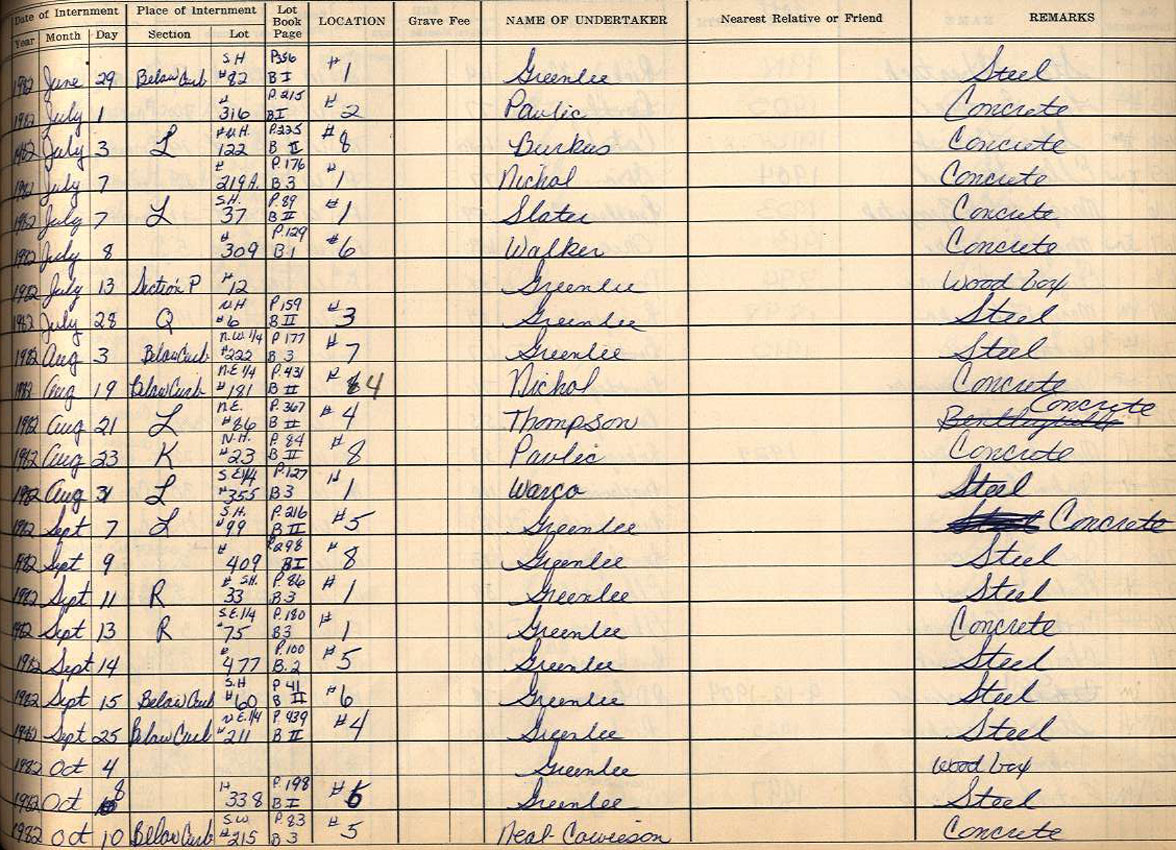 Date of Internment Place of Internment Lot Book Page LOCATION Grave Fee NAME OF UNDERTAKER Nearest Relative or Friend REMARKS
Year Month Day Section Lot
1982 June 29 Below Curb S.H. #82 P.356 B I #1 Greenlee Steel
1982 July 1 # 316 P.215 B I #2 Pavlic Concrete
1982 July 3 L 122 P.225 B II #8 Burkus Concrete
1982 July 7 # 219A. P.176 B 3 #1 Nichol Concrete
1982 July 7 L S.H. 37 P.89 B II #1 Slater Concrete
1982 July 8 # 309 P.129 B.1 #6 Walker Concrete
1982 July 13 Section P #12 Greenlee Wood box
1982 July 28 Q N.H #6 P.159 B II #3 Greenlee Steel
1982 Aug 3 Below Curb N.W. 1/4 #222 P.177 B 3 #7 Greenlee Steel
1982 Aug 19 Below Curb N.E 1/4 #181 P.431 B II # 4 Nichol Concrete
1982 Aug 21 L N.E. #86 P.367 B II #4 Thompson Bentleyville Concrete
1982 Aug 23 K N.H. #23 P.84 B II #8 Pavlic Concrete
1982 Aug 31 L S.E 1/4 #355 P.127 B 3 #1 Warco Steel
1982 Sept 7 L S.H. #99 P.216 B II #5 Greenlee Steel Concrete
1982 Sept 9 # 409 P.298 B I #8 Greenlee Steel
1982 Sept 11 R # S.H. 33 P.86 B.3 #1 Greenlee Steel
1982 Sept 13 R S.E. 1/4 #75 P.180 B 3 #1 Greenlee Concrete
1982 Sept 14 # 477 P.100 B.2 #5 Greenlee Steel
1982 Sept 15 Below Curb S.H #60 P.41 B II #6 Greenlee Steel
1982 Sept 25 Below Curb N.E. 1/4 #211 P.439 B II #4 Greenlee Steel
1982 Oct 4 Greenlee wood box
1982 Oct 8 # 338 P.198 B I #6 Greenlee Steel
1982 Oct 10 Below Curb S.W. #215 P.83 B 3 #5 Neal-Cowieson Concrete